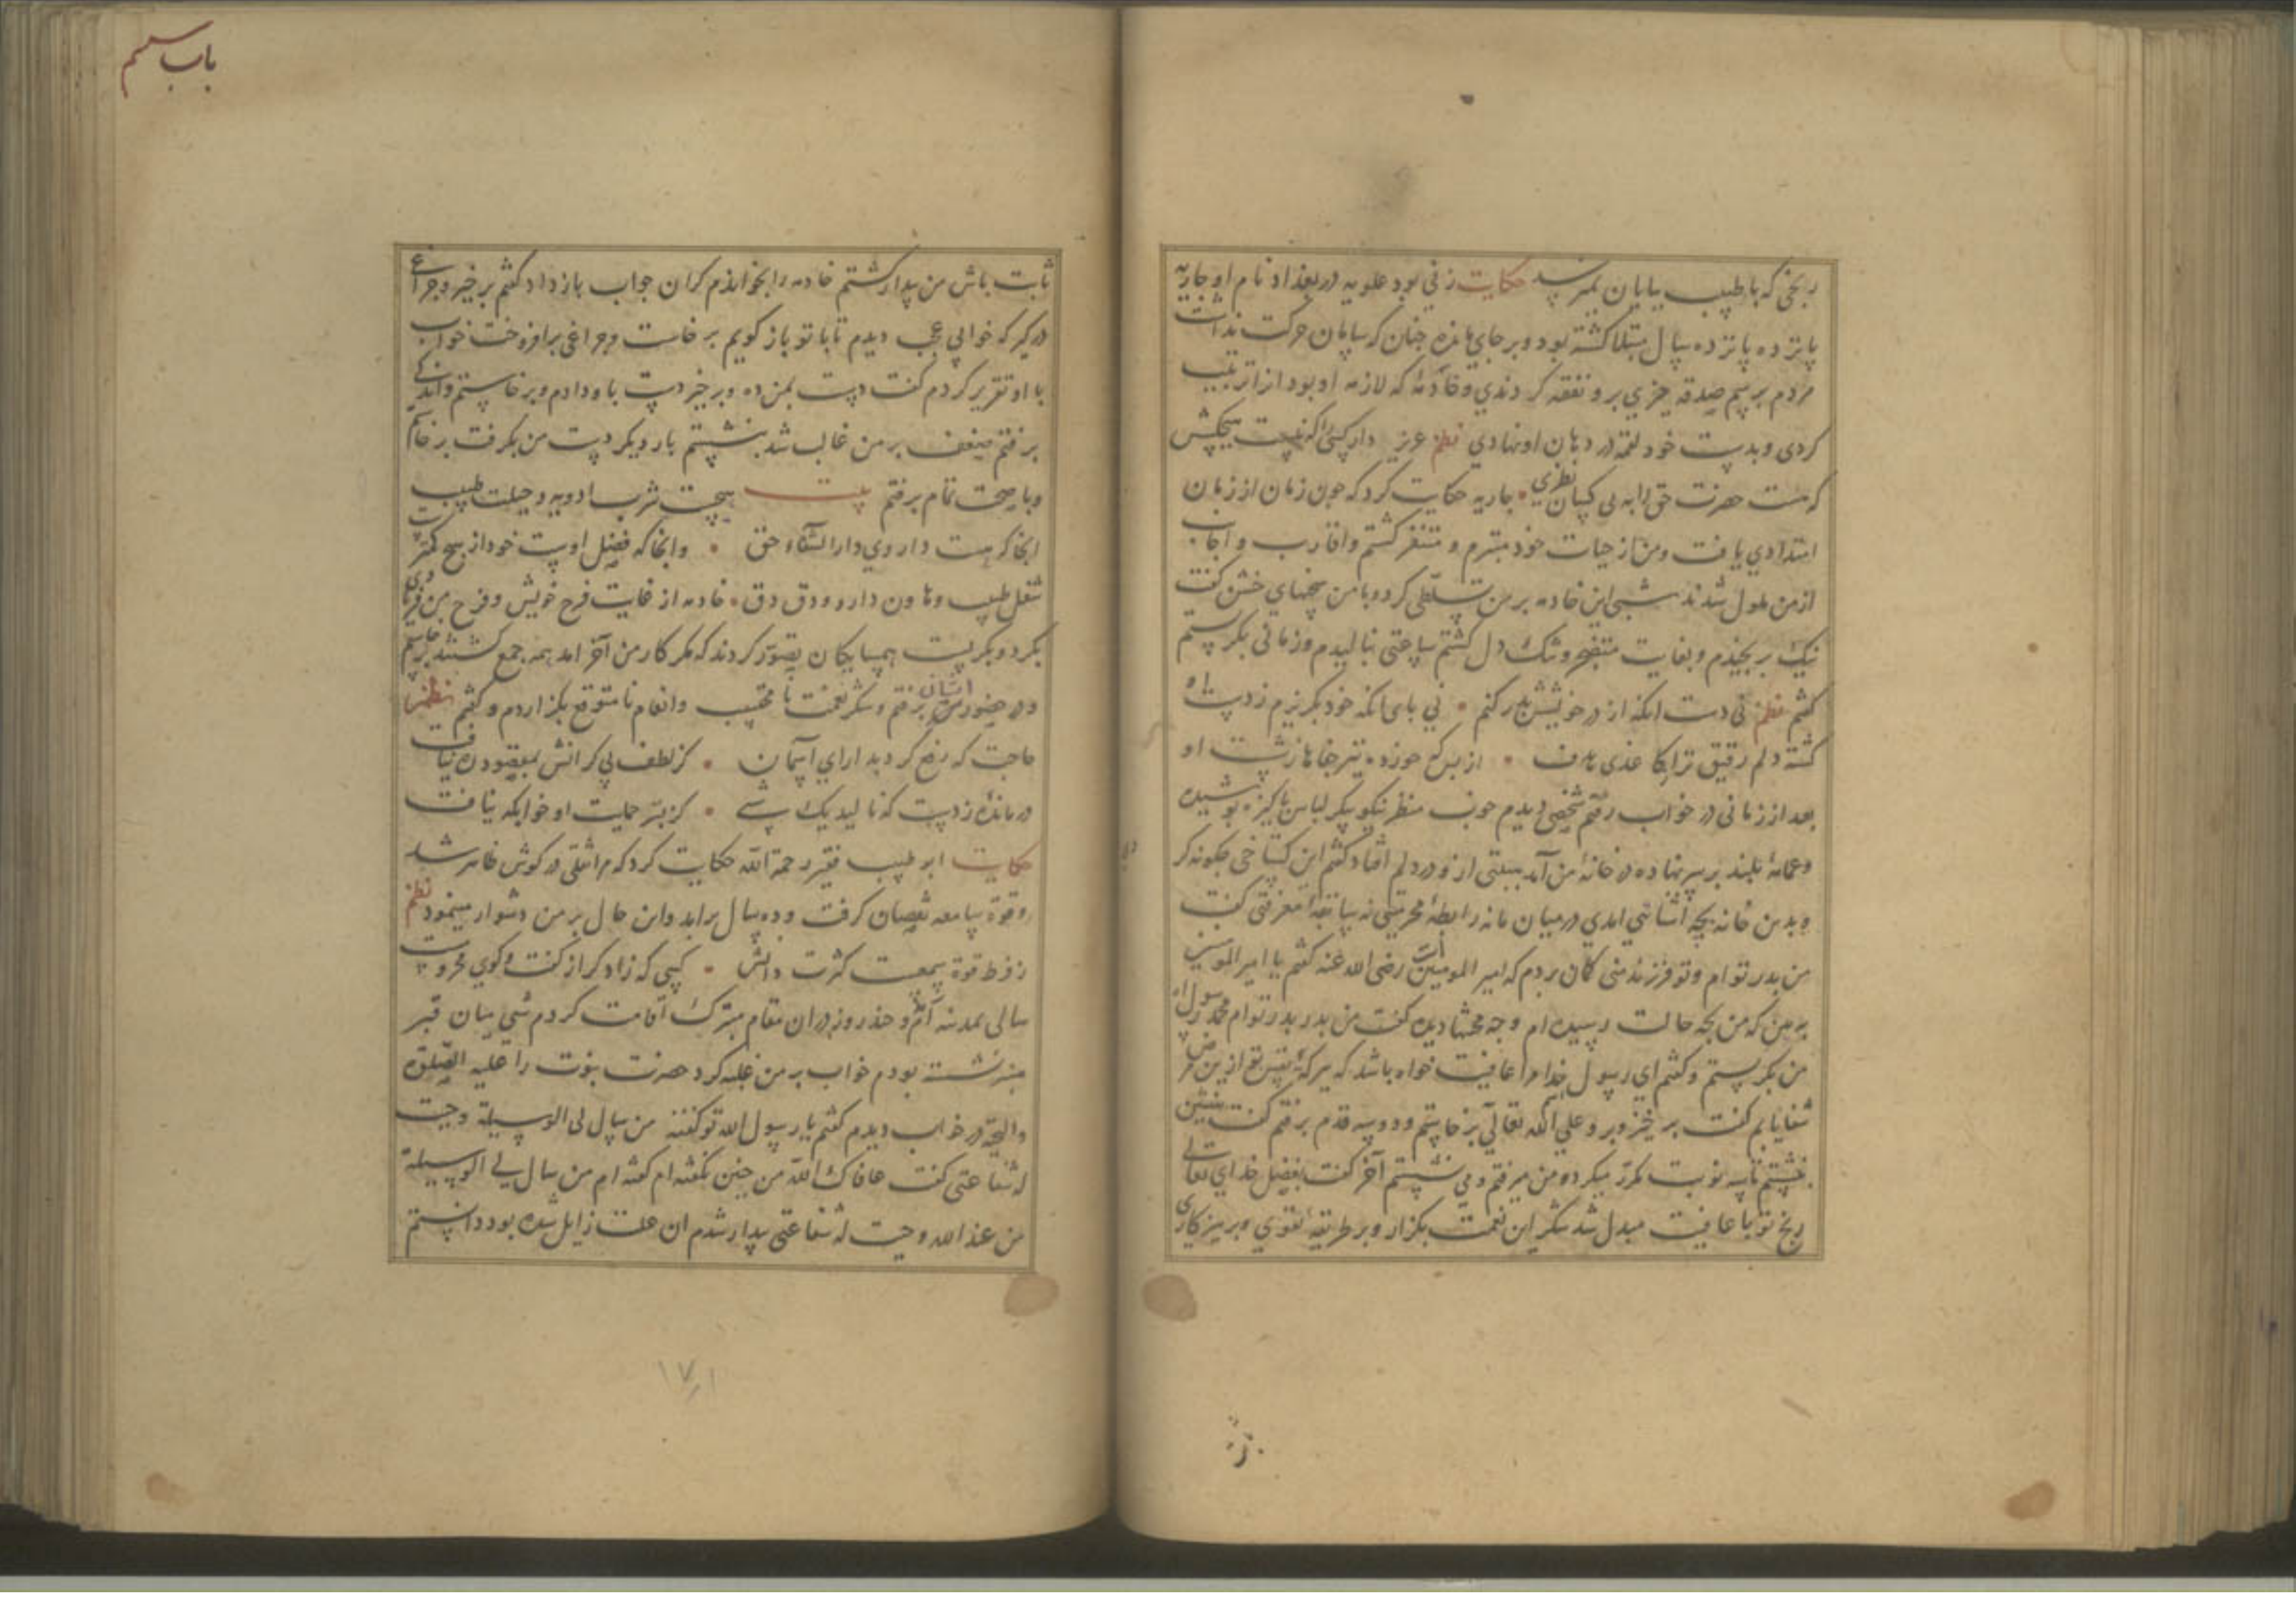 رنجی که با طبیب بپایان نمیرسد حکایت زنی بود علویه در بغداد نام او جاریه
پانزده پانزده سال مبتلا گشته بود و بر جای مانده چنان که بپایان حرکت نداشت
مردم برسم صدقه چیزی برو نفقه کردندی و خادمهٔ که لازمه او بود از ترتیب
کردی و بدست خود لقمه در دهان او نهادی نظم عزیز دار کسی را که نیست هیچکس
که هست حضرت حق را به بی کسان نظری جاریه حکایت کرد که چون زمان از زمان
امتدادی یافت و من از حیات خود متبرم و متنفر گشتم و اقارب و اجانب
از من ملول شدند شبی این خادمه بر من تسلطی کرد و با من سخنهای خشن گفت
نیک برنجیدم و بغایت متضجر و تنگ دل گشتم ساعتی بنالیدم و زمانی بگریستم
گفتم نظم نی دست انکه از در خویشش بدر کنم نی پای انکه خود بگریزم ز دست او
گشته دلم رقیق تر از کاغذی هدف از بس که خورده تیر جفاها ز شست او
بعد از زمانی در خواب رفتم شخصی دیدم خوب منظر نیکو پیکر لباس پاکیزه پوشیده
و عمامهٔ بلند بر سر نهاده در خانهٔ من آمد هیبتی ازو در دلم افتاد گفتم این گستاخی چگونه کرد
و بدین خانه بچه آشنائی امدی در میان ما نه رابطهٔ محرمیتی نه سابقهٔ معرفتی گفت
من پدر توام و تو فرزند منی گمان بردم که امیر المومنین است رضی الله عنه گفتم یا امیر المومنین
ببین که من بچه حالت رسیده ام و چه محنتها دیده گفت من پدر پدر توام محمد رسول الله
من بگریستم و گفتم ای رسول خدا مرا عافیت خواه باشد که ببرکهٔ نفس تو ازین مرض
شفا یابم گفت برخیز و برو علی الله تعالی برخاستم و دو سه قدم برفتم گفت بنشین
بنشستم تا سه نوبت مکرر میکرد و من میرفتم و می نشستم آخر گفت بفضل خدای تعالی
رنج تو با عافیت مبدل شد شکر این نعمت بگزار و بر طریقهٔ تقوی و پرهیزکاری
باب سیم
ثابت باش من بیدار گشتم خادمه را بخواندم گران جواب باز داد گفتم برخیز و چراغ
درگیر که خوابی عجب دیدم تا با تو باز گویم برخاست و چراغی برافروخت خواب
با او تقریر کردم گفت دست بمن ده و برخیز دست باو دادم و برخاستم و اندکی
برفتم ضعف بر من غالب شد بنشستم بار دیگر دست من بگرفت برخاستم
و با صحت تمام برفتم بیت هیچست شرب ادویه و حیلت طبیب
انجا که هست داروی دار الشفاء حق وانجا که فضل اوست خود از هیچ کمترست
شغل طبیب و هاون دارو و دق دق خادمه از غایت فرح خویش و فرح من فریادی
بکرد و بگریست همسایگان تصور کردند که مگر کار من آخر امد همه جمع گشتند برخاستم
و در حضور ایشان برفتم و شکر نعمت نا محتسب و انعام نا متوقع بگزاردم و گفتم نظم
حاجت که رفع کرد بدارای آسمان کز لطف بی کرانش بمقصود ره نیافت
درمانده ز دست که نالید یک شبی کز بستر حمایت او خوابگه نیافت
حکایت ابو طیب فقیر رحمة الله حکایت کرد که مرا ثقلی در گوش ظاهر شد
و قوة سامعه نقصان گرفت و ده سال براید و این حال بر من دشوار مینمود نظم
ز فرط قوة سمعست کثرت دانش کسی که زاد کر از گفت و گوی محرومست
سالی بمدینه آمدم و چند روز در ان مقام متبرک اقامت کردم شبی میان قبر
منبر نشسته بودم خواب بر من غلبه کرد حضرت نبوت را علیه الصلوة
والتحیة در خواب دیدم گفتم یا رسول الله تو گفتهٔ من سال لی الوسیلة وجبت
له شفاعتی گفت عافاک الله من چنین نگفته ام گفته ام من سال لی الوسیلة
من عند الله وجبت له شفاعتی بیدار شدم ان علت زایل شده بود دانستم
۱۷۱